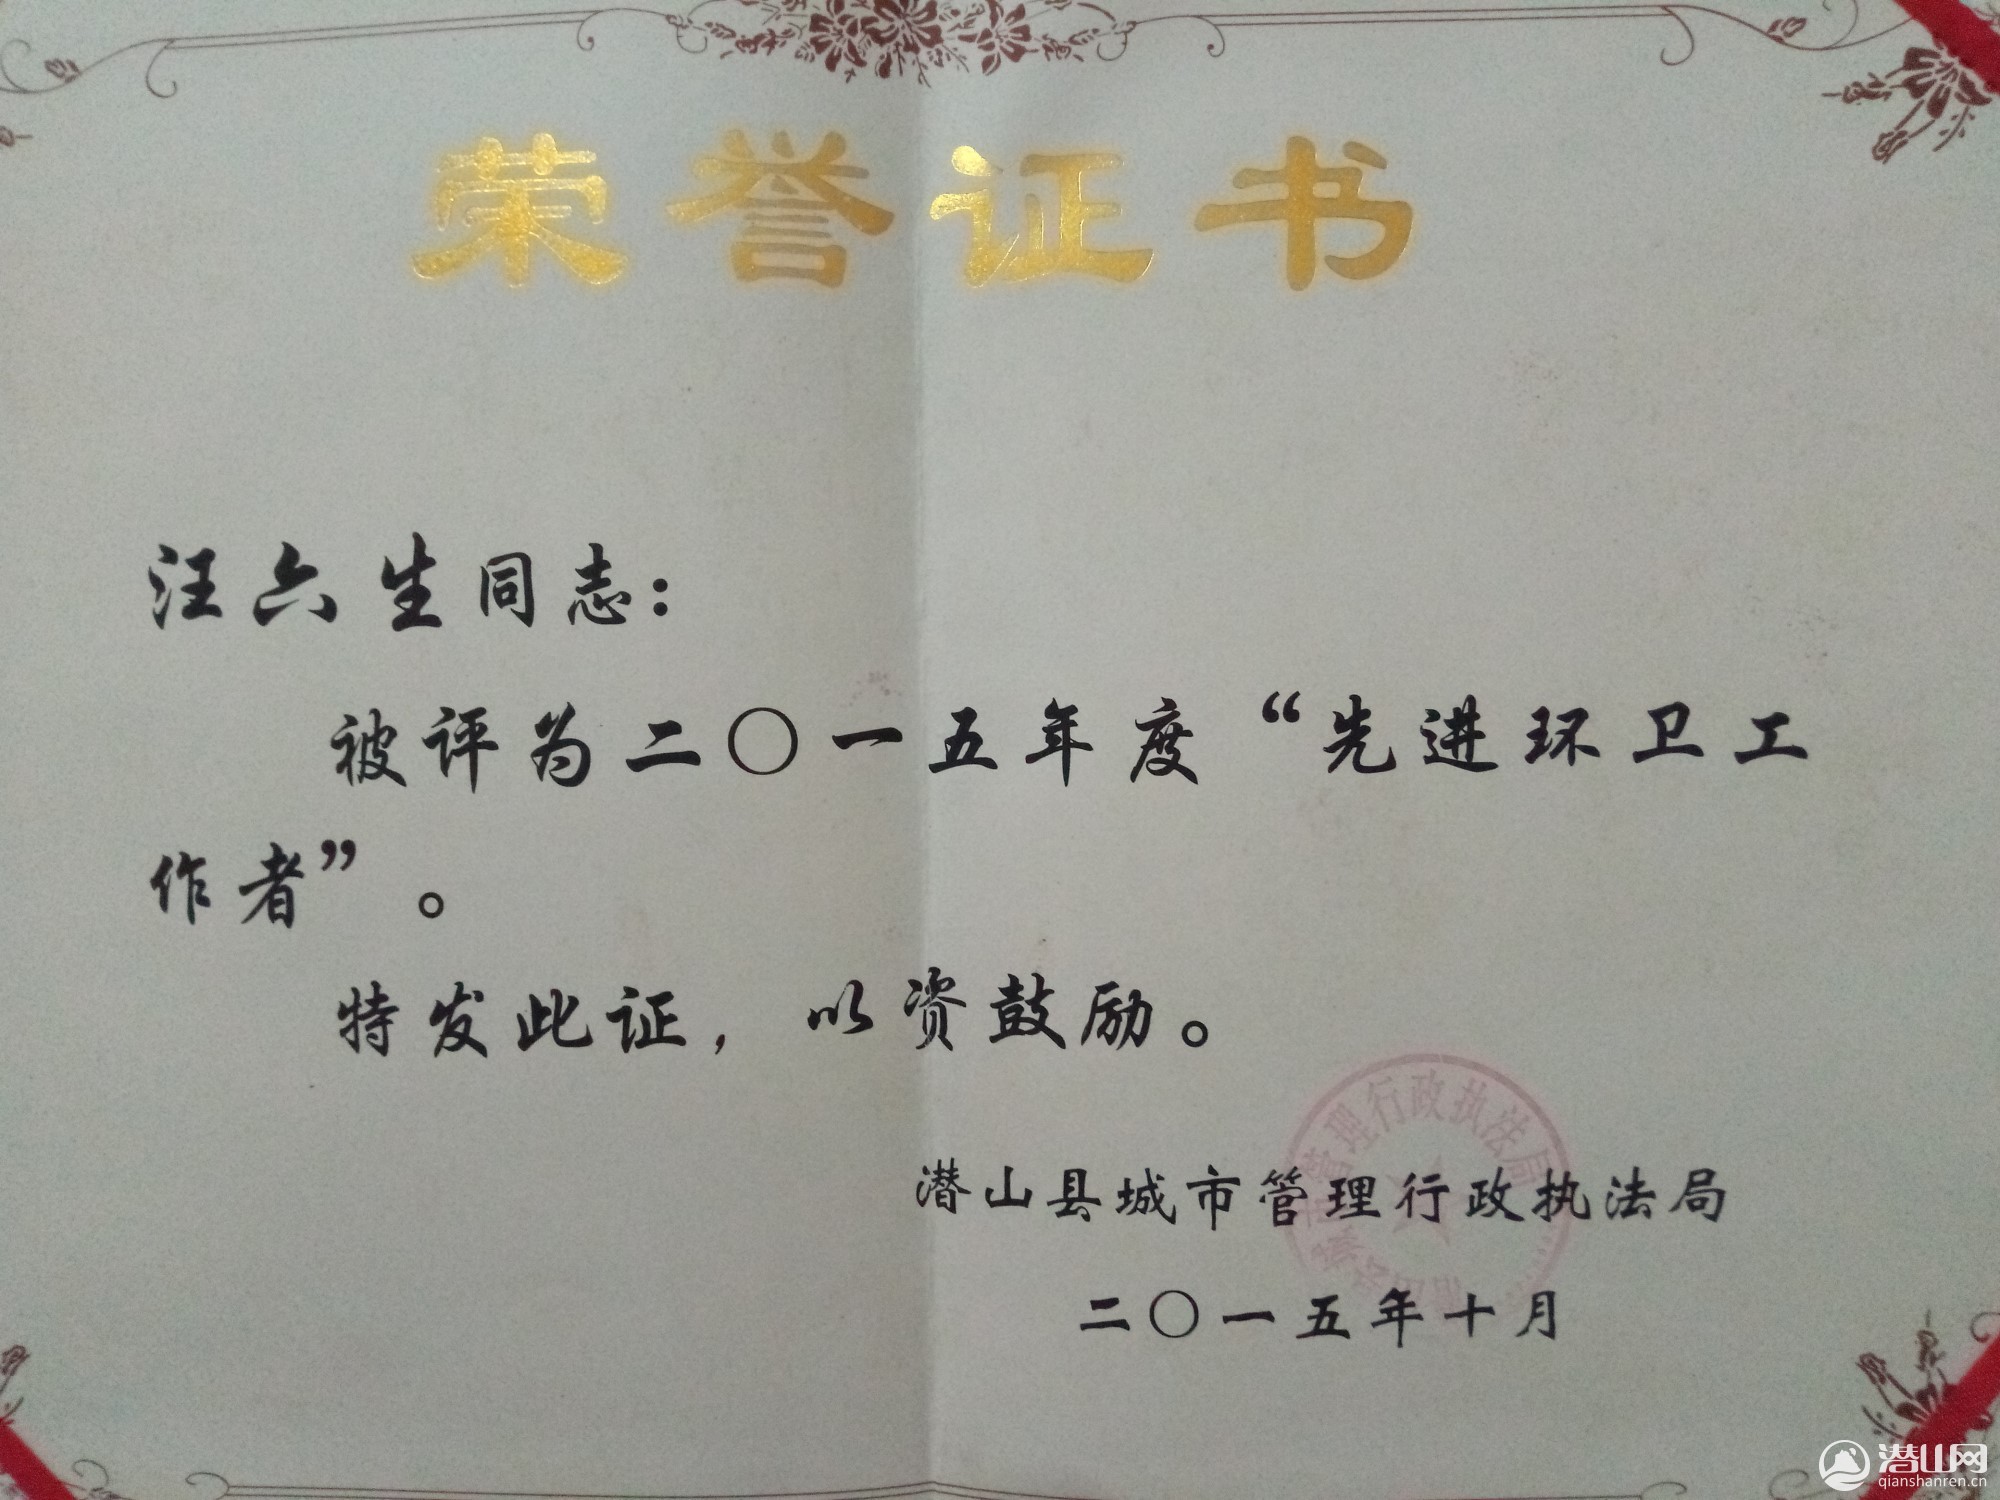 荣誉证书
汪六生同志：
被评为二〇一五年度“先进环卫工
作者”。
特发此证，以资鼓励。
管理行政执法局
潜山县城市管理行政执法局
二〇一五年十月
潜山网
qianshanren.cn